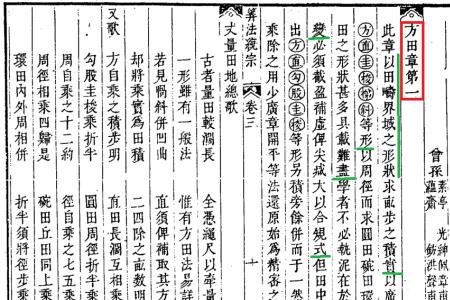 曾孫
燕亭
蘊齋
光紳佩章
鈁洪聲
方田章第一
此章以田疇界域之形狀求畝步之積實以廣
方直圭梭梯斜等形以周徑而求圓田碗田
田之形狀甚多具載難盡學者不必執泥在於
變必須截盈補虛俾尖成大以合規式但田中
出方直勾股圭梭等形另積旁餘併而于一然
乘除之用少廣章開平等法還原始為精密之
算法統宗 卷三 十
丈量田地總歌
古者量田較濶長 全憑繩尺以牽量
一形雖有一般法 惟有方田法易詳
若見喎斜併凹曲 直須俾補取其方
却將乘實為田積 二四除之畝數明
又歌
方自乘之積步明 直田長濶互相乘
勾股圭梭乘折半 圓田周徑折半乘
周自乘之十二約 徑自乘之七五乘
周徑相乘四歸是 碗田丘田同上乘
環田內外周相併 折半須將徑步乘